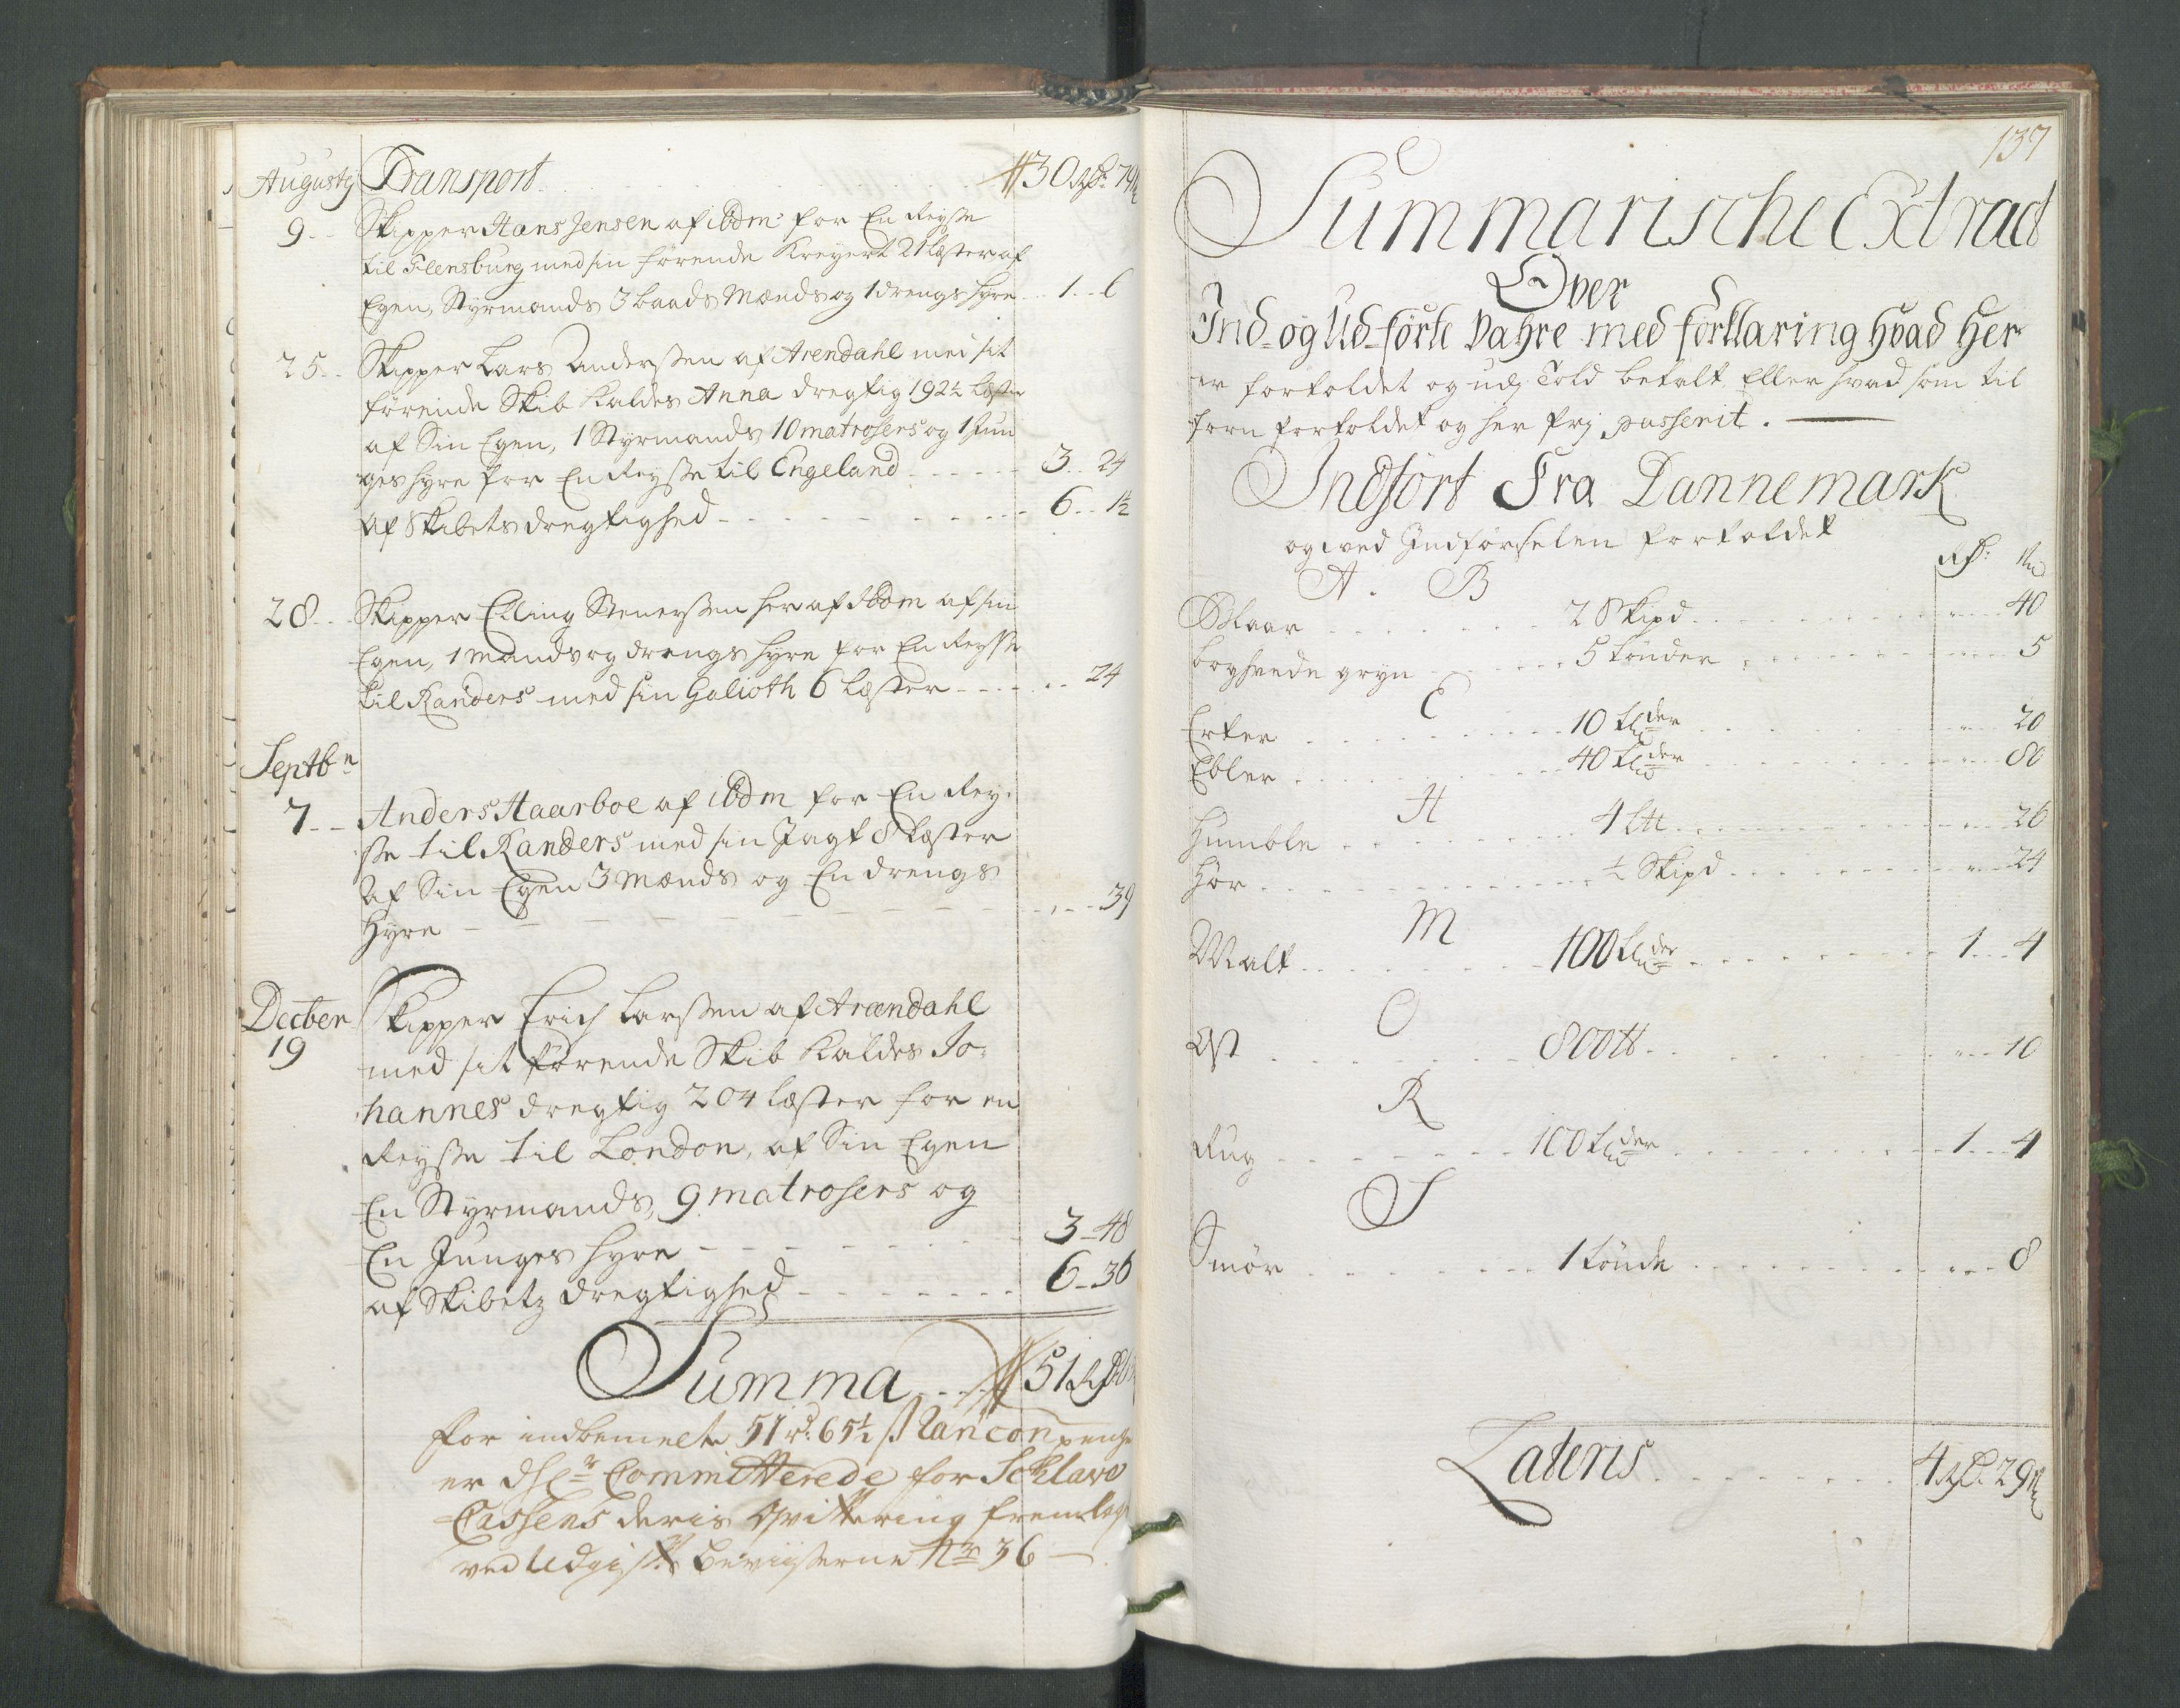 Augustj Transport 30 Rdr 79
9 Skipper Hans Jensen af ibdm: for En Reyse
til Flensburg med sin förende Kreyert 21 læster af
Egen, Styrmands 3 baads Mænds og 1 drengs hyre 1 6
25 Skipper Lars Anderssen af Arendahl med sit
förende Skib Kaldes Anna dregtig 192½ læster
af Sin Egen, 1 Styrmands 10 matrosers og 1 Jun
ges hyre for En Reysse til Engeland 3 24
af Skibets dregtighed 6 1½
28 Skipper Elling Stenerssen her af ibdm af sin
Egen, 1 Mands og drengs hyre for En Reysse
til Randers med sin Galioth 6 læster 24
Septbr
7 Anders Haarboe af ibdm for En Rey
sse til Randers med sin Jagt 8 læster
af Sin Egen 3 Mænds og En drengs
Hyre 39
Decber
19 Skipper Erich Larssen af Arendahl
med sit förende Skib Kaldes Jo-
hannes dregtig 204 læster for en
Reysse til London, af Sin Egen
En Styrmands, 9 matrosers og
En Junges hyre 3 48
af Skibetz dregtighed 6 36
Summa 51 Rdr
for indbemelte 51 rd: 65½ s Rancon penge
er Committerede for Schlave
Cassens deris Qvittering fremlagt
ved Udgifft beviisserne No 36
137
Summarische Extract
Over
Ind- og Ud-förte Vahre med forklaring hvad Her
er fortoldet og Told betalt, Eller hvad som til
forn fortoldet og her frj passerit.
Indfört Fra Dannemark
og ved Indförselen fortoldet
Rdr: s
A. B
Blaar 2 Skipd 40
boghvede gryn 5 tönder 5
E
Erter 10 tnder 20
Ebler 40 tnder 80
H
Humble 4 Ltt 26
Hör ½ Skipd 24
M
Malt 100 tnder 1 4
O
Ost 800 tt 10
R
Rug 100 tnder 1 4
S
Smör 1 tönde 8
Lateris 4 Rdr 29 s